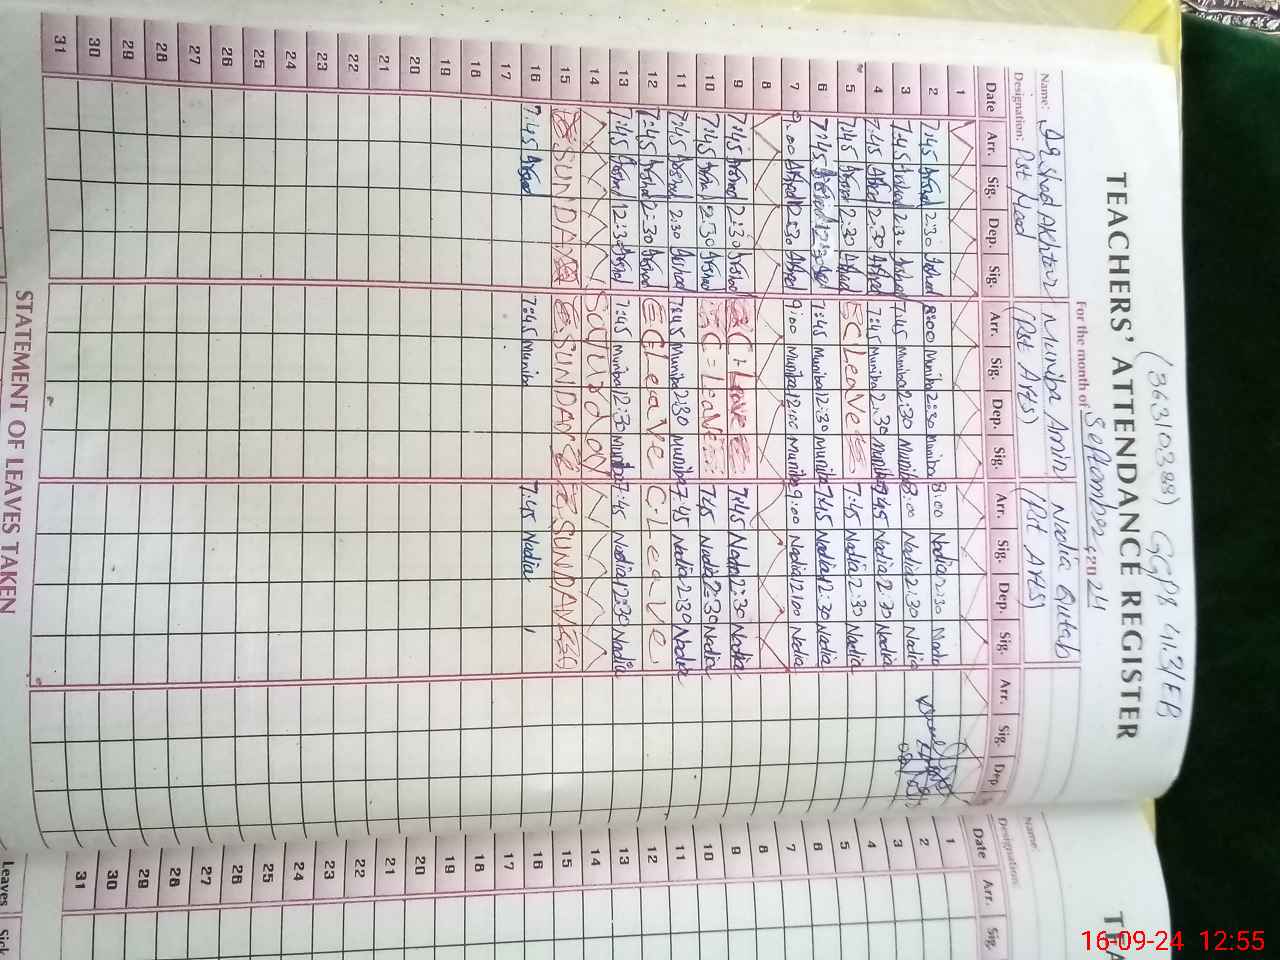 (36310388) GGPS 413/EB
TEACHERS' ATTENDANCE REGISTER
For the month of September, 2024
Name: Irshad Akhtar Muniba Amin Nadia Qutab
Designation: Pst Head (Pst Arts) (Pst Arts)
Date Arr. Sig. Dep. Sig. Arr. Sig. Dep. Sig. Arr. Sig. Dep. Sig. Arr. Sig. Dep.
1
2 7:45 Irshad 2:30 Irshad 8:00 Muniba 2:30 Muniba 8:00 Nadia 2:30 Nadia
3 7:45 Irshad 2:30 Irshad 7:45 Muniba 2:30 Muniba 8:00 Nadia 2:30 Nadia
4 7:45 Irshad 2:30 Irshad 7:45 Muniba 2:30 Muniba 7:45 Nadia 2:30 Nadia
5 7:45 Irshad 2:30 Irshad C Leave 7:45 Nadia 2:30 Nadia
6 7:45 Irshad 12:30 7:45 Muniba 12:30 Muniba 7:45 Nadia 12:30 Nadia
7 9:00 Irshad 12:30 Irshad 9:00 Muniba 12:00 Muniba 9:00 Nadia 12:00 Nadia
8
9 7:45 Irshad 2:30 Irshad C - Leave 7:45 Nadia 2:30 Nadia
10 7:45 Irshad 2:30 Irshad C - Leave 7:45 Nadia 2:30 Nadia
11 7:45 Irshad 2:30 Irshad 7:45 Muniba 2:30 Muniba 7:45 Nadia 2:30 Nadia
12 7:45 Irshad 2:30 Irshad C Leave C. Leave
13 7:45 Irshad 12:30 Irshad 7:45 Muniba 12:30 Muniba 7:45 Nadia 12:30 Nadia
14 Saturday
15 SUNDAY SUNDAY SUNDAY
16 7:45 Irshad 7:45 Muniba 7:45 Nadia
17
18
19
20
21
22
23
24
25
26
27
28
29
30
31
STATEMENT OF LEAVES TAKEN
TEA
Name:
Designation:
Date Arr. Sig.
1
2
3
4
5
6
7
8
9
10
11
12
13
14
15
16
17
18
19
20
21
22
23
24
25
26
27
28
29
30
31
Leaves Sick
16-09-24 12:55